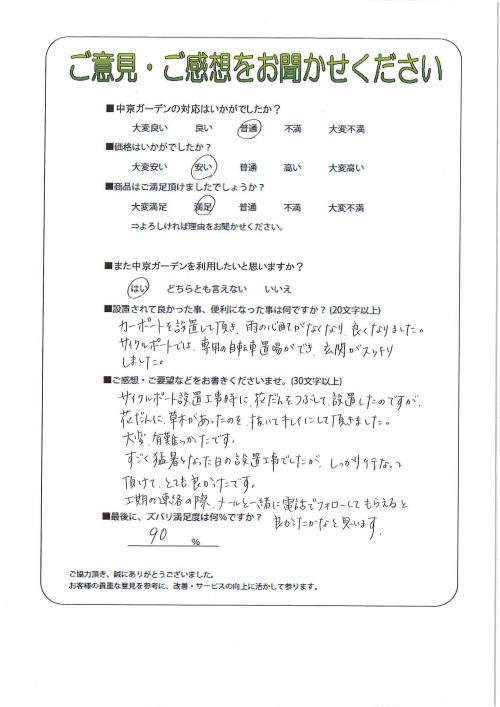 ご意見・ご感想をお聞かせください
■中京ガーデンの対応はいかがでしたか？
大変良い 良い 普通 不満 大変不満
■価格はいかがでしたか？
大変安い 安い 普通 高い 大変高い
■商品はご満足頂けましたでしょうか？
大変満足 満足 普通 不満 大変不満
⇒よろしければ理由をお聞かせください。
■また中京ガーデンを利用したいと思いますか？
はい どちらとも言えない いいえ
■設置されて良かった事、便利になった事は何ですか？(20文字以上)
カーポートを設置して頂き、雨の心配がなくなり、良くなりました。
サイクルポートでは、専用の自転車置場ができ、玄関がスッキリ
しました。
■ご感想・ご要望などをお書きくださいませ。(30文字以上)
サイクルポート設置工事時に、花だんをつぶして、設置したのですが、
花だんに、草木があったのを、抜いてキレイにして頂きました。
大変、有難かったです。
すごく猛暑となった日の設置工事でしたが、しっかり行なって
頂けて、とても良かったです。
工期の連絡の際、メールと一緒に電話でフォローしてもらえると
良かったかなと思います。
■最後に、ズバリ満足度は何％ですか？
90 ％
ご協力頂き、誠にありがとうございました。
お客様の貴重な意見を参考に、改善・サービスの向上に活かして参ります。